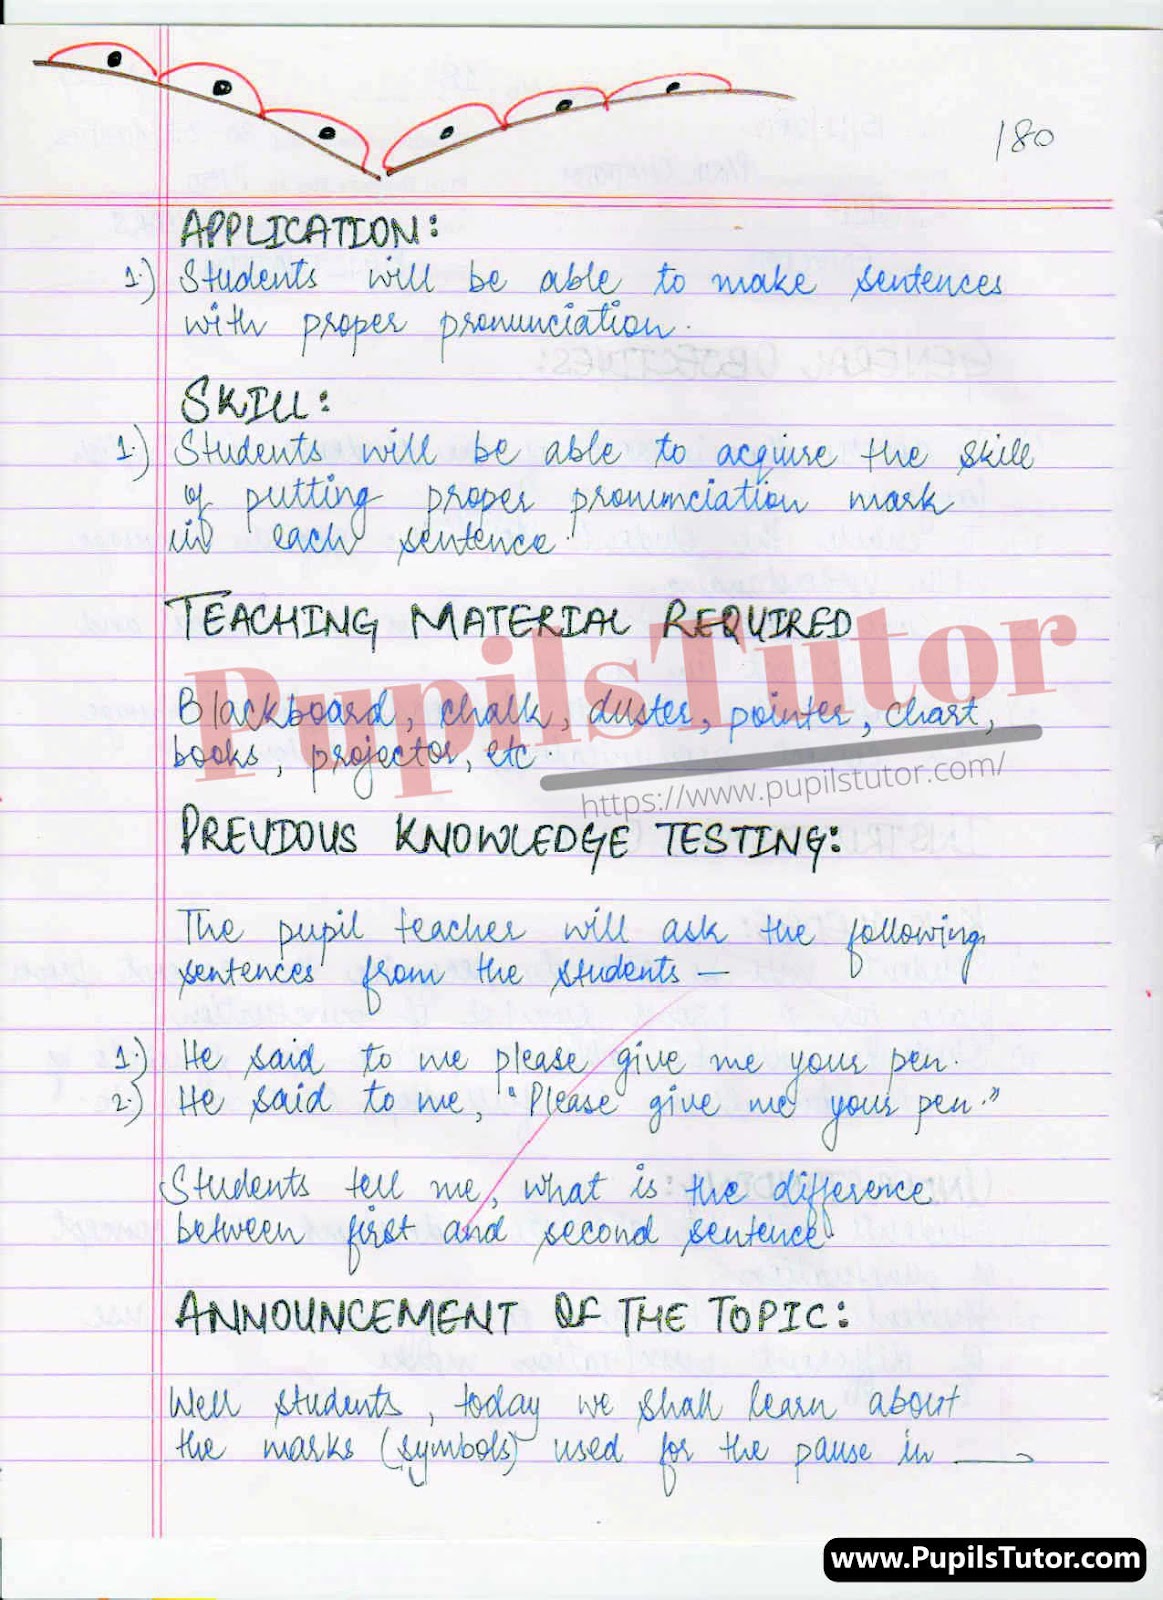 180
APPLICATION:
1.) Students will be able to make sentences
with proper pronunciation.
SKILL:
1.) Students will be able to acquire the skill
of putting proper pronunciation mark
in each sentence.
TEACHING MATERIAL REQUIRED
PupilsTutor
Blackboard, chalk, duster, pointer, chart,
books, projector, etc.
https://www.pupilstutor.com/
PREVIOUS KNOWLEDGE TESTING:
The pupil teacher will ask the following
sentences from the students —
1.) He said to me please give me your pen.
2.) He said to me, "Please give me your pen."
Students tell me, what is the difference
between first and second sentence
ANNOUNCEMENT OF THE TOPIC:
Well students, today we shall learn about
the marks (symbols) used for the pause in
www.PupilsTutor.com